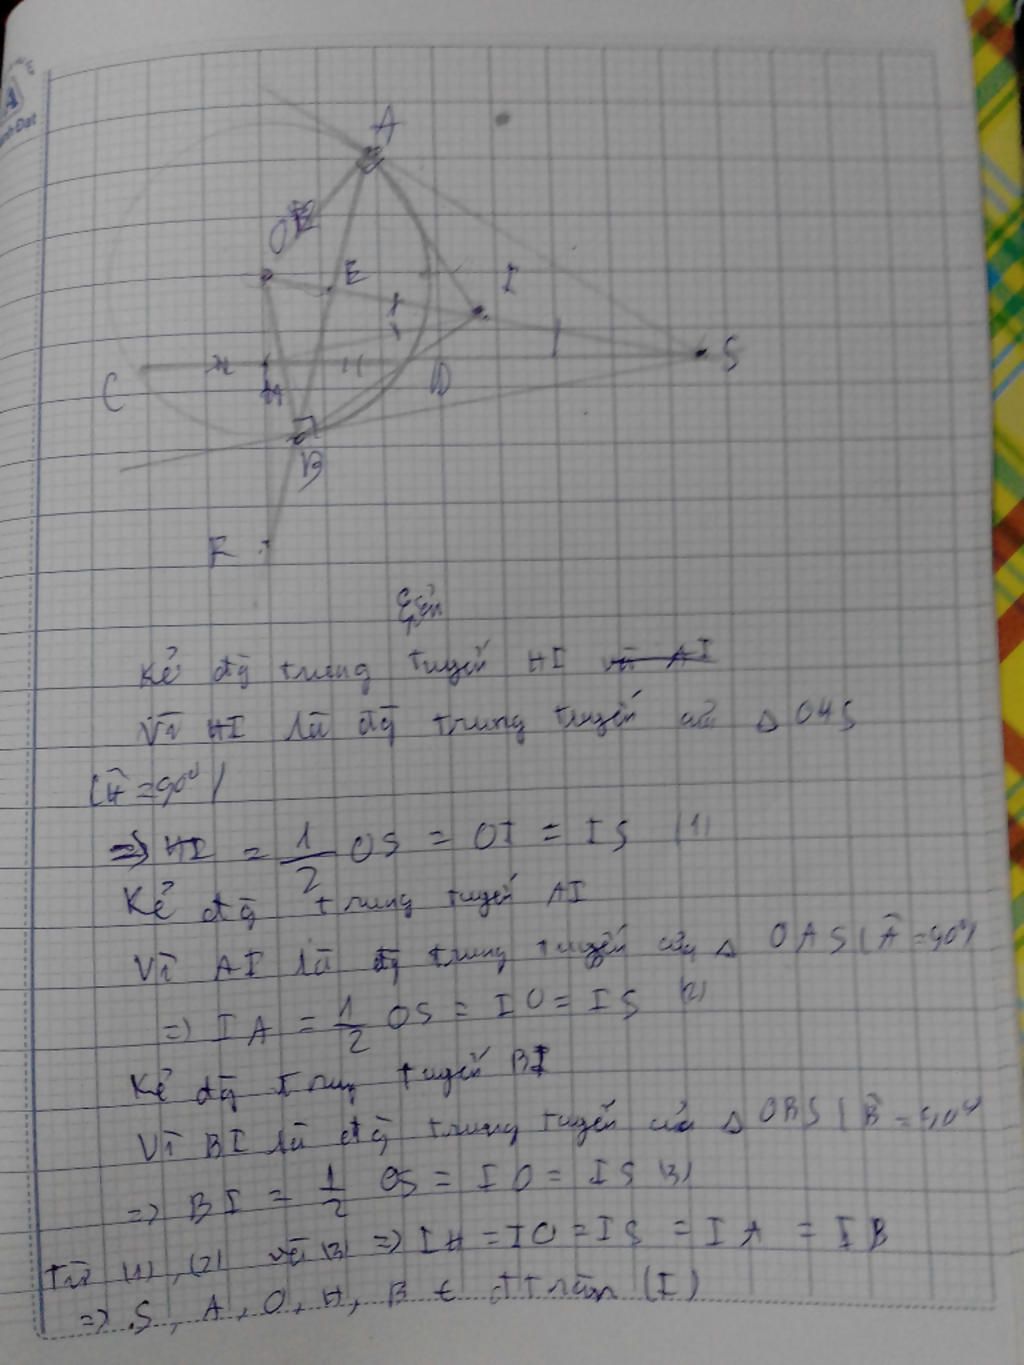 A
O
E
I
S
C
H
D
B
F
Kẻ đg trung tuyến HI và AI
Vì HI là đg trung tuyến của Δ OHS
(Ĥ = 90°)
=> HI = 1/2 OS = OI = IS (1)
Kẻ đg trung tuyến AI
Vì AI là đg trung tuyến của Δ OAS (Â = 90°)
=> IA = 1/2 OS = IO = IS (2)
Kẻ đg trung tuyến BI
Vì BI là đg trung tuyến của Δ OBS (B̂ = 90°
=> BI = 1/2 OS = IO = IS (3)
Từ (1), (2) và (3) => IH = IO = IS = IA = IB
=> S, A, O, H, B ∈ đt tròn (I)